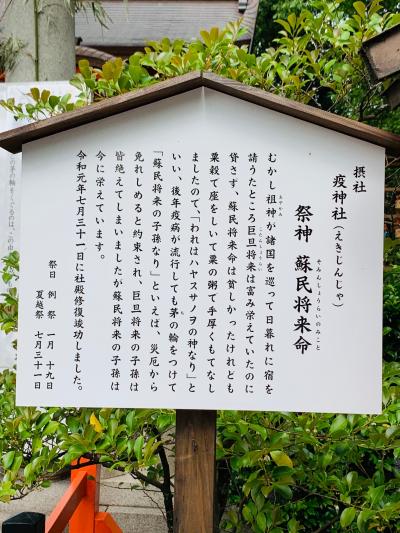 摂社
疫神社（えきじんじゃ）
祭神 蘇民将来命
そみんしょうらいのみこと
むかし祖神が諸国を巡って日暮れに宿を
もやがみ
請うたところ巨旦将来は富み栄えていたのに
こたんしょうらい
貸さず、蘇民将来命は貧しかったけれども
粟穀で座をしいて粟の粥で手厚くもてなし
ましたので、「われはハヤスサノヲの神なり」と
いい、後年疫病が流行しても茅の輪をつけて
「蘇民将来の子孫なり」といえば、災厄から
免れしめると約束され、巨旦将来の子孫は
皆絶えてしまいましたが蘇民将来の子孫は
今に栄えています。
令和元年七月三十一日に社殿修復竣功しました。
祭日 例祭 一月 十九日
夏越祭 七月三十一日